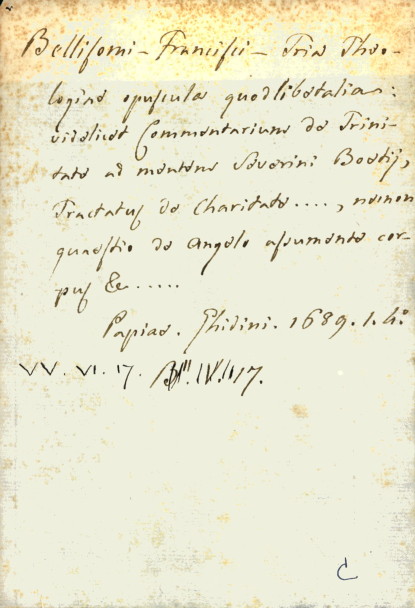 Bellisomi - Francisci - Tria Theo-
logiae opuscula quodlibetalia:
videlicet Commentarium de Trini-
tate ad mentem Severini Boetij,
Tractatus de Charitate...., necnon
quaestio de Angelo assumente cor-
pus &c.....
Papiae. Ghidini. 1689. 1. 4.°
VV. VI. 17. 17.
C